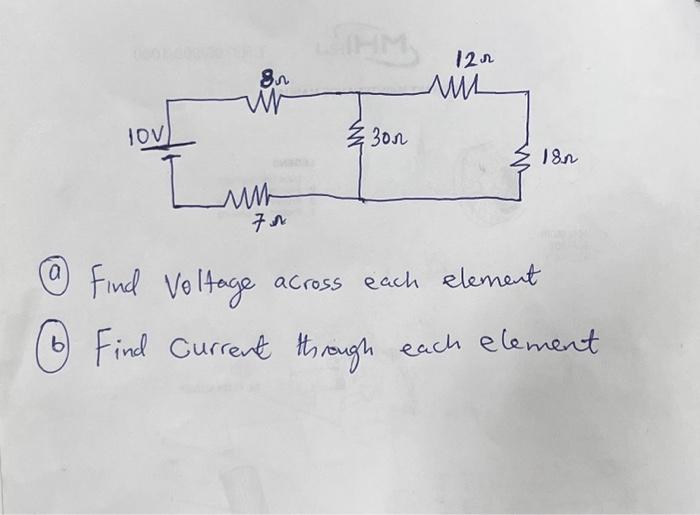 12Ω
8Ω
10V
30Ω
18Ω
7Ω
ⓐ Find Voltage across each element
ⓑ Find Current through each element